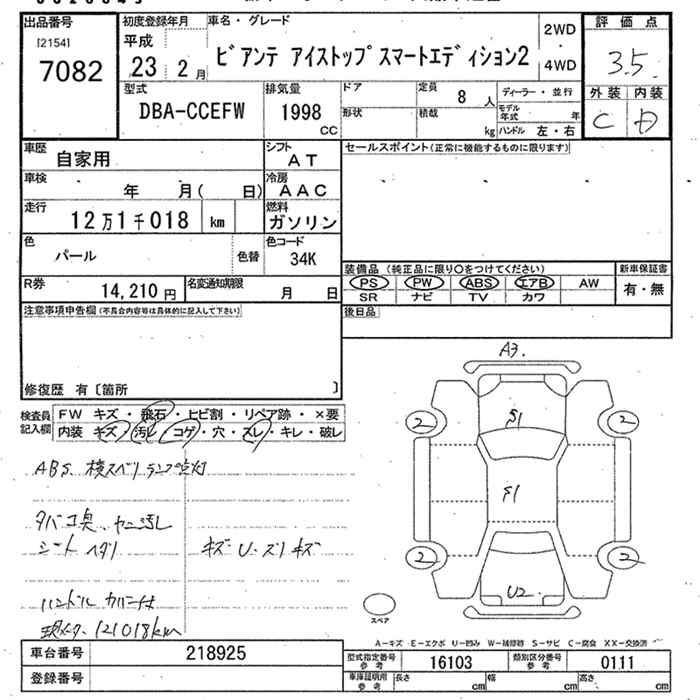 出品番号
[2154]
7082
初度登録年月
平成
23 2月
車名・グレード
ビアンテ アイストップスマートエディション2
2WD
・
4WD
評価点
3.5
外装 内装
C D
型式
DBA-CCEFW
排気量
1998
cc
ドア
定員
8人
形状
積載
kg
ディーラー・並行
モデル年式 年
ハンドル 左・右
車歴
自家用
シフト
AT
車検
年 月( 日)
冷房
AAC
走行
12万1千018 km
燃料
ガソリン
色
パール
色替
色コード
34K
R券
14,210円
名変通知期限
月 日
セールスポイント(正常に機能するものに限ります)
装備品(純正品に限り○をつけてください)
PS PW ABS エアB AW
SR ナビ TV カワ
新車保証書
有・無
後日品
注意事項申告欄(不具合内容等は具体的に記入して下さい)
修復歴 有〔箇所 〕
検査員記入欄
FW キズ・飛石・ヒビ割・リペア跡・×要
内装 キズ・汚レ・コゲ・穴・スレ・キレ・破レ
ABS 横スベリランプ点灯
タバコ臭、ヤニ汚レ
シートヘタリ
キズ・U・スリキズ
ハンドルカバー付
現メーター121018km
A3
2
S1
2
S1
2
2
U2
スペア
A-キズ E-エクボ U-凹み W-補修跡 S-サビ C-腐食 XX-交換済
車台番号
218925
登録番号
型式指定番号
参考
16103
類別区分番号
参考
0111
車庫証明用
参考
長さ
cm
幅
cm
高さ
cm